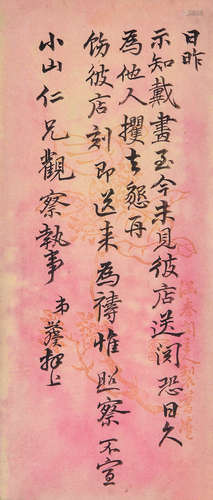 日昨
示知戴書至今未見彼店送閱恐日久
為他人攫去懇再
飭彼店刻即送来為禱惟照察不宣
小山仁兄觀察執事 弟葵拜上